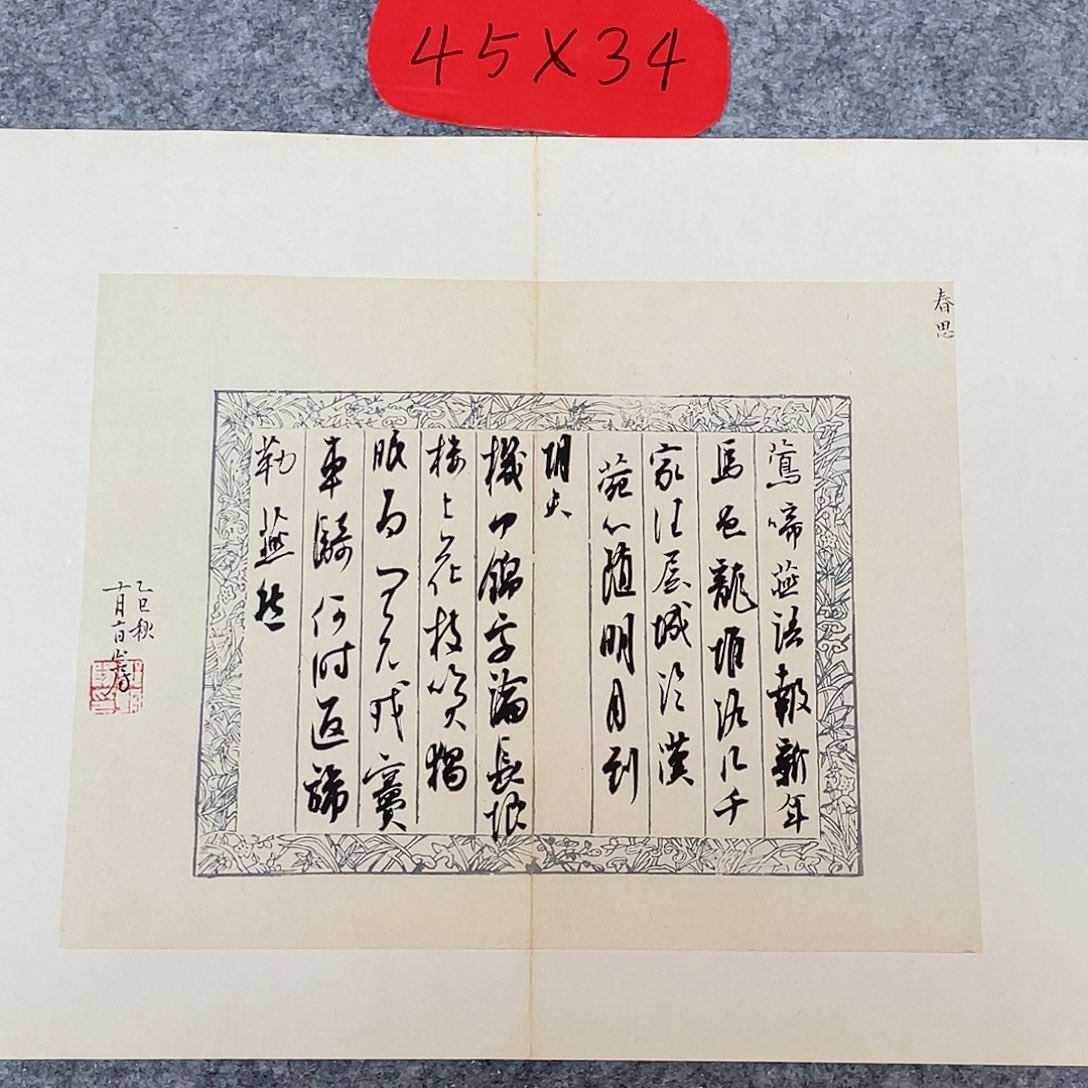 45X34
春思
鶯啼燕語報新年
馬邑龍堆路几千
家住层城漢
苑心随明月到
胡天
機中錦字論長恨
楼上花枝笑獨
眠为问元戎竇
車騎何时返旆
勒燕然
乙巳秋
十月